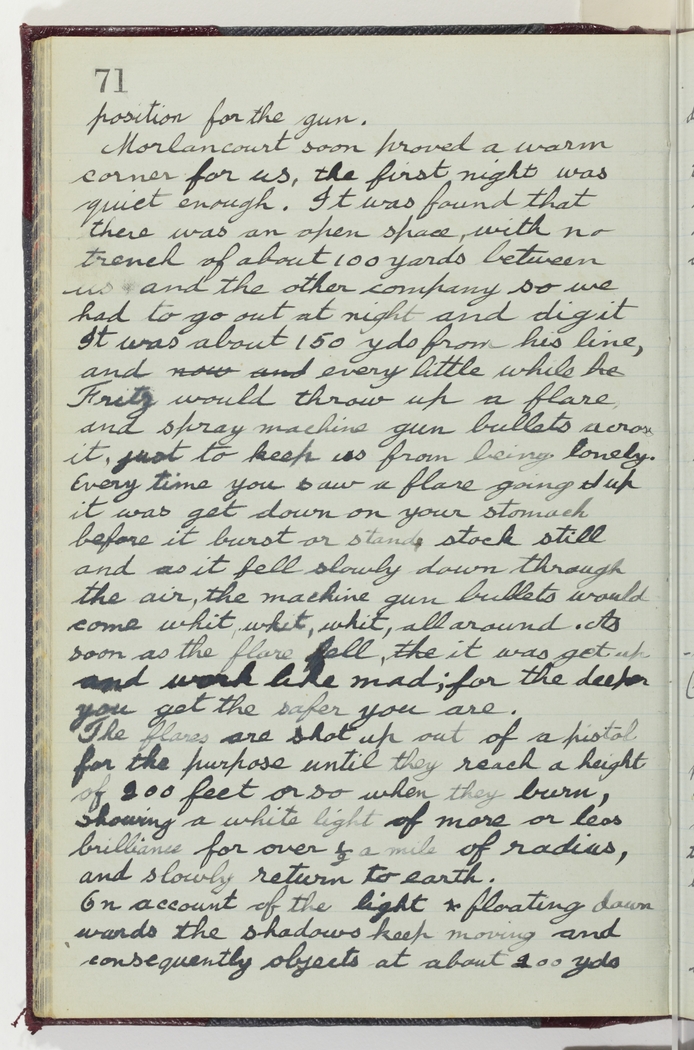 71
position for the gun.
Morlancourt soon proved a warm
corner for us, the first night was
quiet enough. It was found that
there was an open space, with no
trench of about 100 yards between
us and the other company so we
had to go out at night and dig it
It was about 150 yds from his line,
and now and every little while he
Fritz would throw up a flare,
and spray machine gun bullets across
it, just to keep us from being lonely.
Every time you saw a flare going up
it was get down on your stomach
before it burst or stand stock still
and as it fell slowly down through
the air, the machine gun bullets would
come whit, whit, whit, all around. As
soon as the flare fell, the it was get up
and work like mad; for the deeper
you get the safer you are.
The flares are shot up out of a pistol
for the purpose until they reach a height
of 200 feet or so when they burn,
showing a white light of more or less
brilliance for over ½ a mile of radius,
and slowly return to earth.
On account of the light floating down
wards the shadows keep moving and
consequently objects at about 200 yds